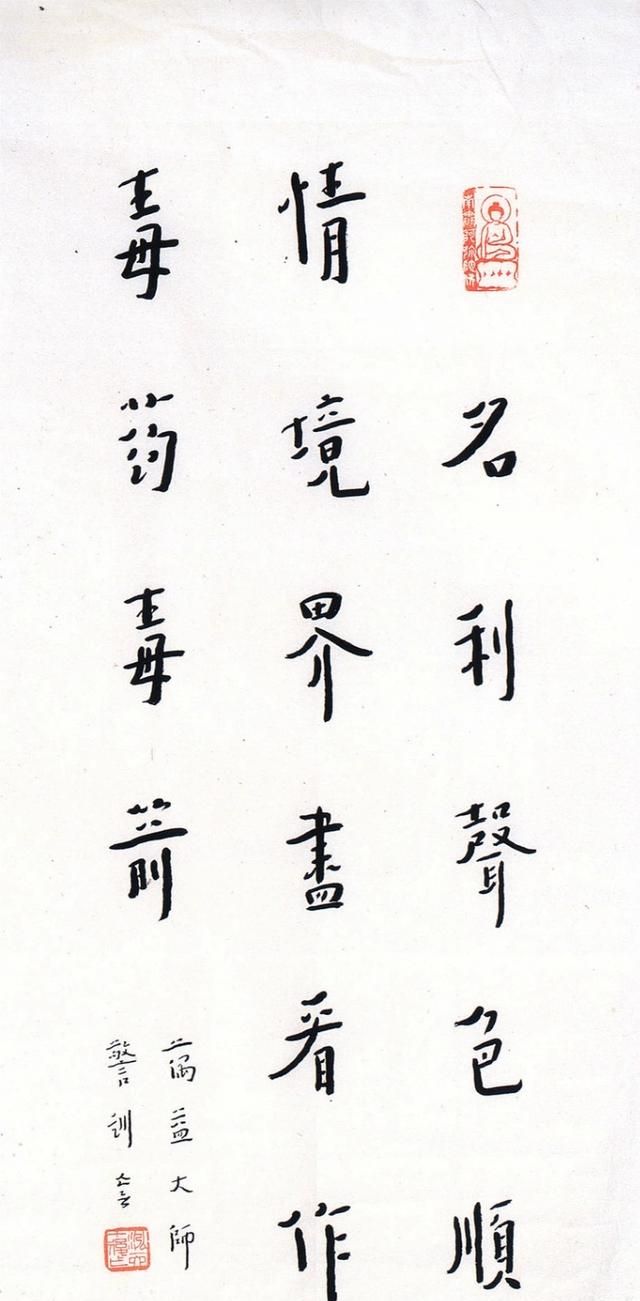 名利聲色順
情境界盡看作
毒药毒箭
蕅益大師
警訓 音